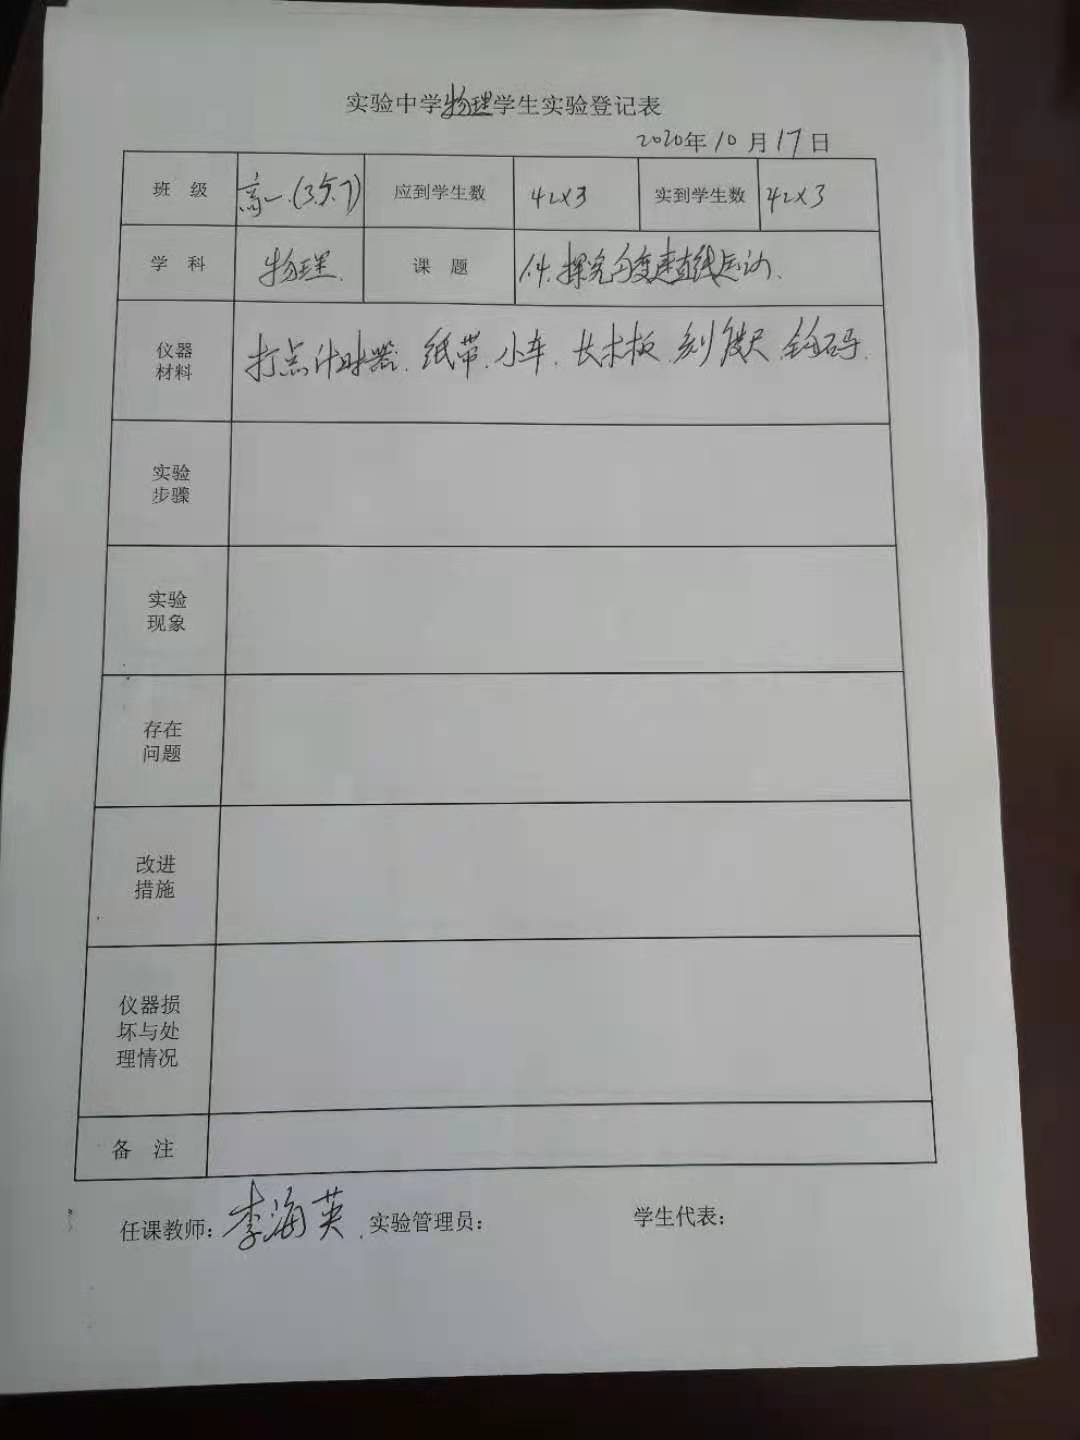 实验中学物理学生实验登记表
2020年10月17日
班 级 高一.(3.5.7) 应到学生数 42×3 实到学生数 42×3
学 科 物理. 课 题 1.4.探究匀变速直线运动.
仪器
材料
打点计时器.纸带.小车.长木板.刻度尺.钩码.
实验
步骤
实验
现象
存在
问题
改进
措施
仪器损
坏与处
理情况
备 注
任课教师：李海英. 实验管理员： 学生代表：